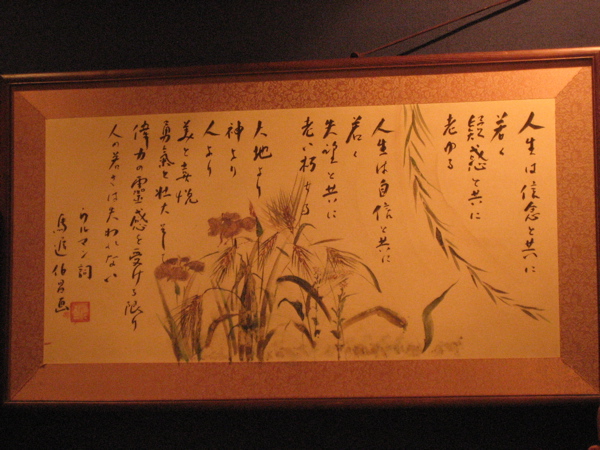 人生は信念と共に
若く
疑惑と共に
老ゆる
人生は自信と共に
若く
失望と共に
老い朽ちる
大地より
神より
人より
美と喜悦
勇氣と壮大 そして
偉力の霊感を受ける限り
人の若さは失われない
ウルマン詞
画